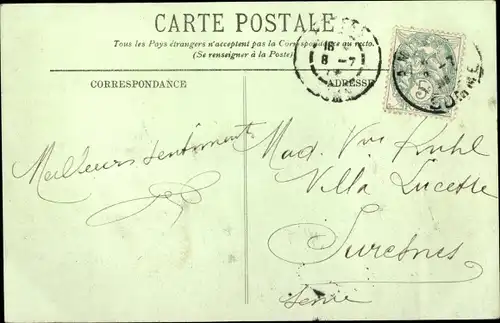 CARTE POSTALE
Tous les Pays étrangers n'acceptent pas la Correspondance au recto.
(Se renseigner à la Poste)
CORRESPONDANCE
ADRESSE
18
8 - 7
SOMME
5
Meilleurs sentiments
Mad. Vve Kuhl
Villa Lucette
Suresnes
Seine